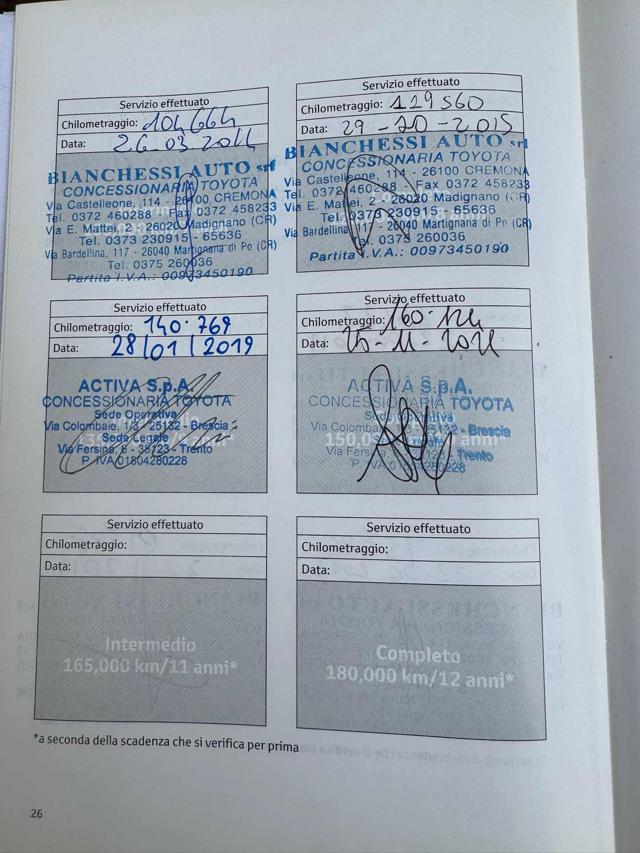 Servizio effettuato
Chilometraggio: 104664
Data: 26 03 2014
BIANCHESSI AUTO srl
CONCESSIONARIA TOYOTA
Via Castelleone, 114 - 26100 CREMONA
Tel. 0372 460288 - Fax 0372 458233
Via E. Mattei, 2 - 26020 Madignano (CR)
Tel. 0373 230915 - 65636
Via Bardellina, 117 - 26040 Martignana di Po (CR)
Tel. 0375 260036
Partita I.V.A.: 00973450190
Servizio effettuato
Chilometraggio: 129560
Data: 29-10-2015
BIANCHESSI AUTO srl
CONCESSIONARIA TOYOTA
Via Castelleone, 114 - 26100 CREMONA
Tel. 0372 460288 - Fax 0372 458233
Via E. Mattei, 2 - 26020 Madignano (CR)
Tel. 0373 230915 - 65636
Via Bardellina, 117 - 26040 Martignana di Po (CR)
Tel. 0375 260036
Partita I.V.A.: 00973450190
Servizio effettuato
Chilometraggio: 140.769
Data: 28/01/2019
ACTIVA S.p.A.
CONCESSIONARIA TOYOTA
Sede Operativa
Via Colombaie, 1/3 - 25132 - Brescia
Sede Legale
Via Fersina, 6 - 38123 - Trento
P. IVA 01804280228
Servizio effettuato
Chilometraggio: 160.124
Data: 25-11-2021
ACTIVA S.p.A.
CONCESSIONARIA TOYOTA
Sede Operativa
Via Colombaie, 25132 - Brescia
150,0 anni*
Via Fersina, - Trento
P. IVA 01804280228
Servizio effettuato
Chilometraggio:
Data:
Intermedio
165,000 km/11 anni*
Servizio effettuato
Chilometraggio:
Data:
Completo
180,000 km/12 anni*
*a seconda della scadenza che si verifica per prima
26